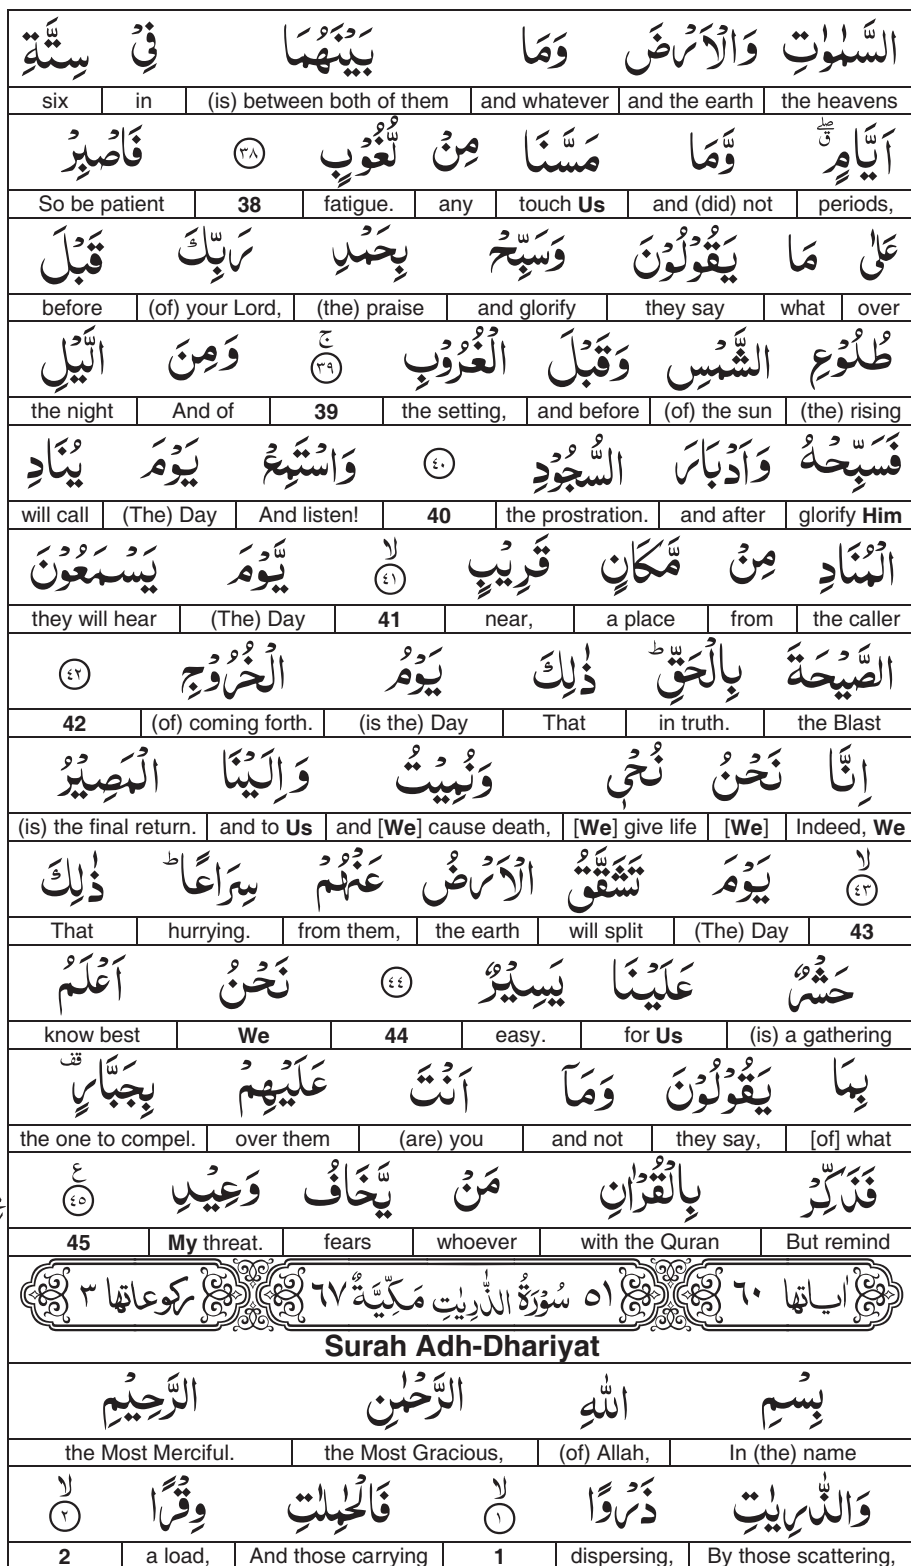 السَّمٰوٰتِ وَالْاَرْضَ وَمَا بَيْنَهُمَا فِيْ سِتَّةِ
the heavens and the earth and whatever (is) between both of them in six
اَيَّامٍ ۖق وَّمَا مَسَّنَا مِنْ لُّغُوْبٍ ٣٨ فَاصْبِرْ
periods, and (did) not touch Us any fatigue. 38 So be patient
عَلٰى مَا يَقُوْلُوْنَ وَسَبِّحْ بِحَمْدِ رَبِّكَ قَبْلَ
over what they say and glorify (the) praise (of) your Lord, before
طُلُوْعِ الشَّمْسِ وَقَبْلَ الْغُرُوْبِ ۚ ٣٩ وَمِنَ الَّيْلِ
(the) rising (of) the sun and before the setting, 39 And of the night
فَسَبِّحْهُ وَاَدْبَارَ السُّجُوْدِ ٤٠ وَاسْتَمِعْ يَوْمَ يُنَادِ
glorify Him and after the prostration. 40 And listen! (The) Day will call
الْمُنَادِ مِنْ مَّكَانٍ قَرِيْبٍ ۙ ٤١ يَّوْمَ يَسْمَعُوْنَ
the caller from a place near, 41 (The) Day they will hear
الصَّيْحَةَ بِالْحَقِّ ؕ ذٰلِكَ يَوْمُ الْخُرُوْجِ ٤٢
the Blast in truth. That (is the) Day (of) coming forth. 42
اِنَّا نَحْنُ نُحْيٖ وَنُمِيْتُ وَاِلَيْنَا الْمَصِيْرُ
Indeed, We [We] [We] give life and [We] cause death, and to Us (is) the final return.
ۙ ٤٣ يَوْمَ تَشَقَّقُ الْاَرْضُ عَنْهُمْ سِرَاعًا ؕ ذٰلِكَ
43 (The) Day will split the earth from them, hurrying. That
حَشْرٌ عَلَيْنَا يَسِيْرٌ ٤٤ نَحْنُ اَعْلَمُ
(is) a gathering for Us easy. 44 We know best
بِمَا يَقُوْلُوْنَ وَمَآ اَنْتَ عَلَيْهِمْ بِجَبَّارٍ قف
[of] what they say, and not (are) you over them the one to compel.
فَذَكِّرْ بِالْقُرْاٰنِ مَنْ يَّخَافُ وَعِيْدِ ع ٤٥
But remind with the Quran whoever fears My threat. 45
اٰياتها ٦٠ ٥١ سُوْرَةُ الذّٰرِيٰتِ مَكِّيَّةٌ ٦٧ ركوعاتها ٣
Surah Adh-Dhariyat
بِسْمِ اللّٰهِ الرَّحْمٰنِ الرَّحِيْمِ
In (the) name (of) Allah, the Most Gracious, the Most Merciful.
وَالذّٰرِيٰتِ ذَرْوًا ۙ ١ فَالْحٰمِلٰتِ وِقْرًا ۙ ٢
By those scattering, dispersing, 1 And those carrying a load, 2